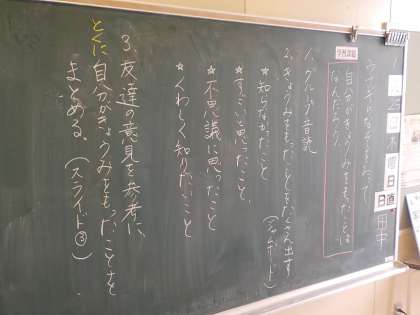 ウナギのなぞを追って
学習課題
自分がきょうみをもったことは
なんだろう。
1、グループ音読
2、きょうみをもったことをたくさん出す
★知らなかったこと
★すごいと思ったこと、
★不思議に思ったこと
★くわしく知りたいこと
3、友達の意見を参考に、
とくに自分がきょうみをもったことを
まとめる。(スライド③)
日直
田中